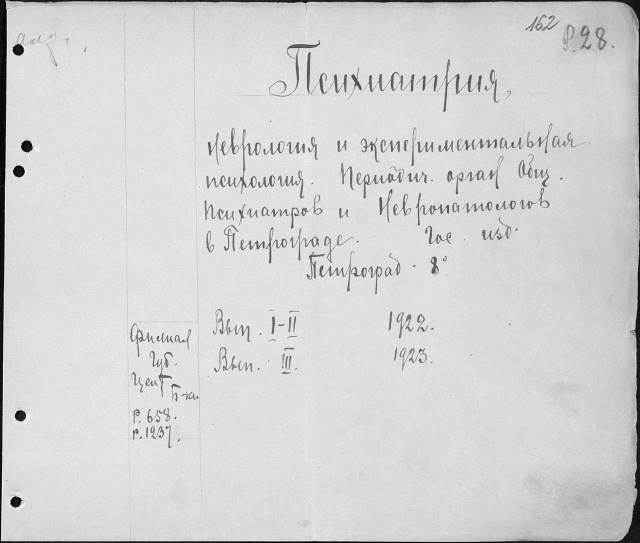 162
P.28.
Психиатрия,
неврология и экспериментальная
психология. Периодич. орган Общ.
Психиатров и Невропатологов
в Петрограде. Гос. изд.
Петроград. 8°
Вып. I-II 1922.
Вып. III. 1923.
Филиал
Губ.
Цент
Б-ки
P. 658.
P. 1237.